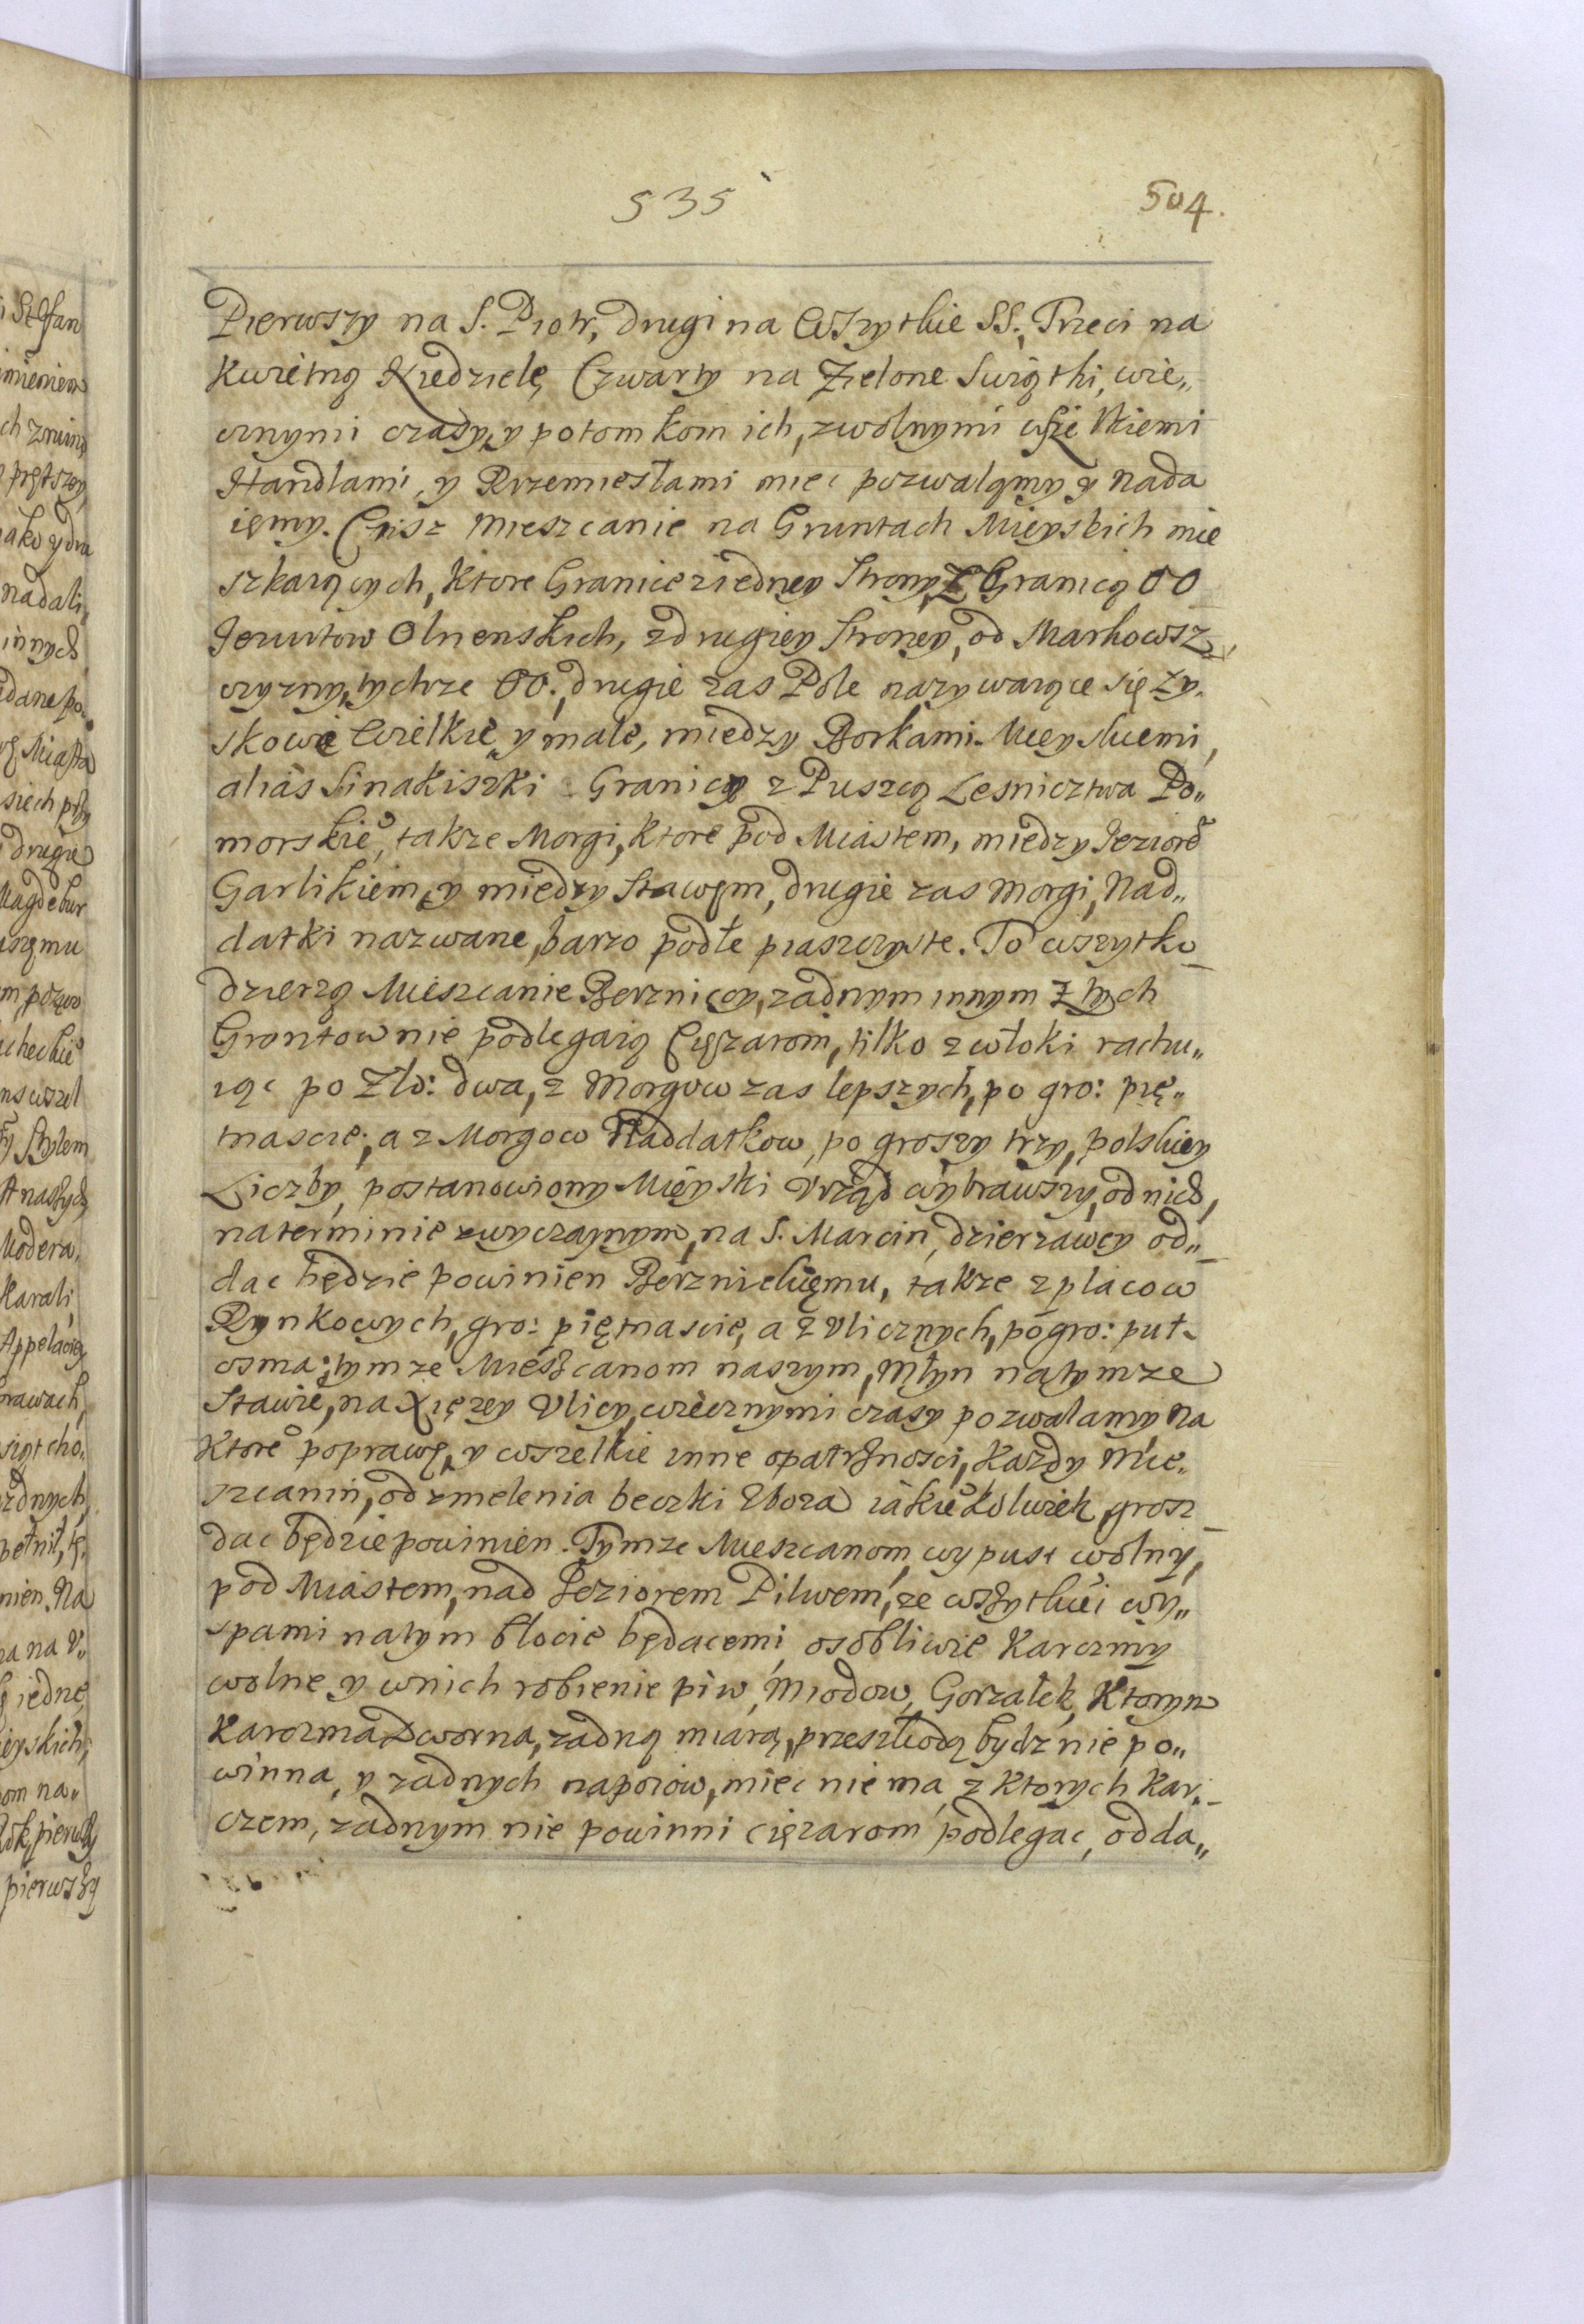 535
504.
Pierwszy na S. Piotr, drugi na Wszytkie SS., Trzeci na
Kwietną Niedzielę, Czwarty na Zielone Swiątki, wie„
cznymi czasy, y potomkom ich, zwolnymi wszelkiemi
Handlami, y Rzemiesłami miec pozwalamy y nada
iemy. Czisz Mieszcanie na Gruntach Mieyskich mie
szkaiących, ktore Granice ziedney Strony, z Granicą OO
Jezuitow Olwenskich, zdrugiey Stroney, od Markowsz
czyzny, tychze OO., drugie zas Pole nazywaiące się Zy„
skowe Wielkie y małe, miedzy Borkami Mieyskiemi,
alias Sinakiszki Granicą z Puszcą Lesnictwa Po„
morskie°, takze Morgi, ktore pod Miastem, miedzy Jeziore~
Garlikiem, y miedzy Stawem, drugie zas Morgi, Nad„
datki nazwane, barzo podłe piaszczyste. To wszytko
dzierzą Mieszcanie Berznicy, zadnym innym z tych
Grontow nie podlegaią Cięzarom, tilko z włoki rachu„
iąc po Zło: dwa, z Morgow zas lepszych, po gro: pię„
tnascie, a z Morgow Naddatkow, po groszy trzy, polskiey
Liczby, postanowiony Mieyski Vrząd wybrawszy, od nich,
naterminie zwyczaynym, na S. Marcin, dzierzawcy od„
dac będzie powinien Berznickiemu, takze z placow
Rynkowych, gro: piętnascie, a z Vlicznych, po gro: puł„
osma; tymze Mieszcanom naszym, Młyn natymze
Stawie, na Xięzey Vlicy, wiecznymi czasy pozwalamy, Na
ktore° poprawę, y wszelkie inne opatrznosci, kazdy Mie„
szcanin, od zmelenia beczki Zboza iakie°kolwiek, grosz
dac będzie powinien. Tymze Mieszcanom, wypust wolny,
pod Miastem, nad Jeziorem Pilwem, ze wszytkiei wy„
spami natym błocie będacemi, osobliwie Karczmy
wolne y wnich robienie piw, Miodow, Gorzałek, Ktorym
Karczma Dworna, zadną miarą, przeszkodą bydz nie po„
winna, y zadnych napoiow, miec nie ma, z Ktorych Kar„
czem, zadnym nie powinni cięzarom podlegac, odda„